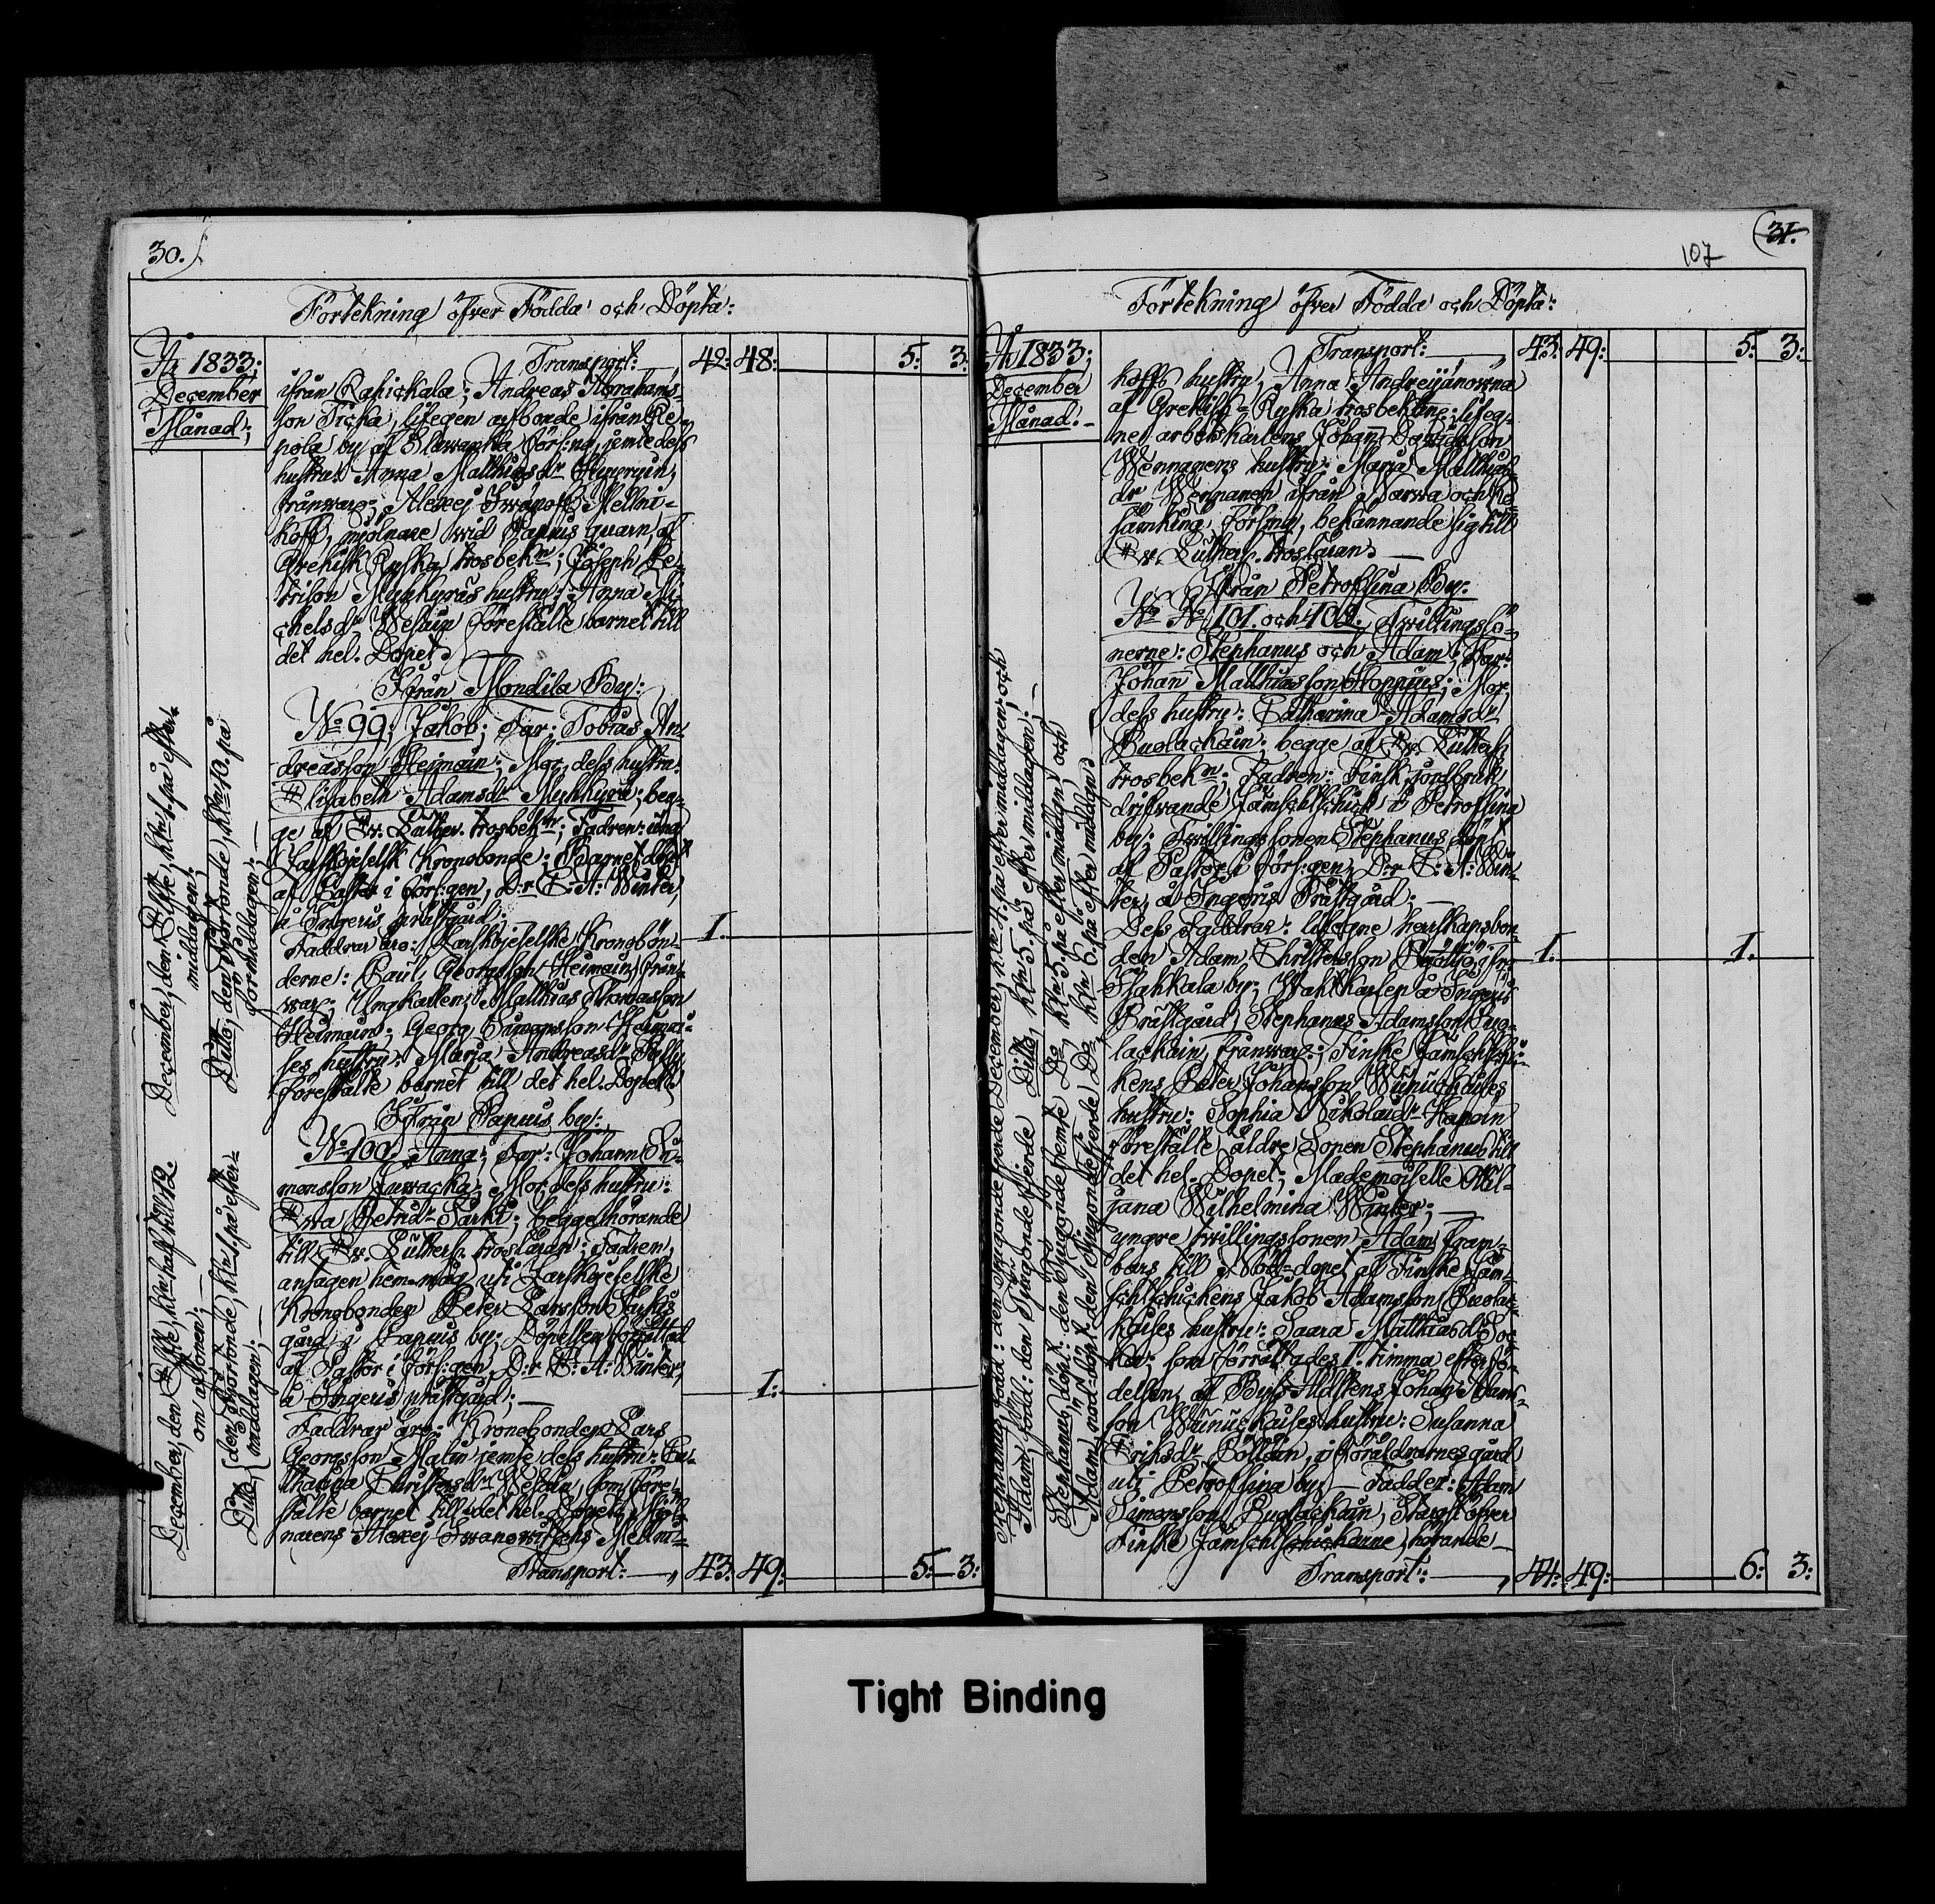 30.
Förtekning öfver Födda och Döpta:
År 1833;
December
Månad;
Transport: 42: 48: 5: 3:
ifrån Rahickala; Andreas Abrahams-
son Ticka, lifegen afbonde ifrån Re-
pola by af Slawanka Förs:ng, jemte dess
hustru Anna Matthiasdr
frånwar:; Alexej Iwanoff Mellni-
koff, mjölnare wid Papuis quarn, af
Grekisk Ryska trosbekn; Joseph Pe-
trison Myhkyräs hustru: Anna Mi-
chelsdr Wesain föreställte barnet till
det hel. Dopet.
Ifrån Mondila By:
No 99; Jakob; Far: Tobias An-
dreasson Heimain; Mor, dess hustru:
Elisabeth Adamsdr Myhkyrä; beg-
ge af Ev. Luther. trosbekn; Fadren: ung
Zarskojeselsk Kronobonde; Barnet döpt
af Pastor i Förs:gen, D:r C: A: Winter,
å Ingeris prästgård; 1.
Faddrar äro: Zarskojeselske Kronobön-
derne: Paul Georgsson Heimain, från-
war:; Ungkarlen; Matthias Thomasson
Heimain; Georg Simonsson Heimai-
ses hustru: Maria Andreasdr
föreställte barnet till det hel. Dopet.
Ifrån Papuis by:
No 100; Anna; Far: Johann Si-
monsson Juwacka; Mor, dess hustru:
Ewa Petridr Särki; begge hörande
till Ev. Luthersk trosläran; Fadren,
antagen hemmåg uti Zarskojeselske
Kronobonden Peter Larsson Särkis
gård i Papuis by; Döpelsen förrättad
af Pastor i Förs:gen, D:r C: A: Winter,
å Ingeris prästgård; 1:
Faddrar äro: Kronobonden Lars
Georgsson Malin jemte dess hustru: Ca-
tharina Christersdr Wesain, som före-
ställte barnet till det hel. Dopet; Mjöl-
narens Alexej Iwanowitschs Mellni-
Transport: 43: 49: 5: 3:
December, den Elfte, klrn 1. på efter-
middagen;
Ditto, den Fjortonde, klrn 10. på
förmiddagen;
December, den Elfte, klrn half till 12.
om aftonen;
Ditto, den Fjortonde, klrn 1. på efter-
middagen;
107
31.
Förtekning öfver Födda och Döpta:
År 1833;
December
Månad:
Transport: 43: 49: 5: 3:
koffs hustru, Anna Andrejanowna
af Grekisk-Ryska trosbekne; lifeg-
ne arbetskarlens Johan Davidsson
Wennanens hustru: Maria Matthias-
dr Wennanen ifrån Narwa och
Förs:ng, bekännande sig till
Ev. Luthersk. trosläran.
Ifrån Petroffsina By:
No No 101. och 102. Twillingssö-
nerne: Stephanus och Adam; Far:
Johan Matthiasson Hoppuis; Mor,
dess hustru: Catharina Adamsdr
Puolackain; begge af Ev. Luthersk
trosbekn; Fadren: Finsk jordbruk
drifwande Jämschtschick i Petroffsina
by; Twillingssonen Stephanus döpt
af Pastor i Förs:gen, D:r C: A: Win-
ter, å Ingeris Prästgård;
Dess Faddrar: lifegne herrskapsbon-
den Adam Christersson ifrn 1. 1.
Hahkala by; Wahtkarlen å Ingeris
Prästgård, Stephanus Adamsson Puo-
lackain, frånwar:; Finske Jämschtschi-
kens Peter Johansson
hustru: Sophia Nikolaidr Haponin
föreställte äldre Sonen Stephanus till
det hel. Dopet; Mademoiselle Mil-
jana Wilhelmina Winter;
yngre twillingssonen Adam, fram-
bars till Nöd-dopet af Finske Jäm-
schtschickens Jakob Adamsson Puolac-
kaises hustru: Saara Matthiasdr
; som förrättades 1. timma efter föd-
delsen, af Byss Äldstens Johan Adams-
son hustru: Susanna
Eriksdr Pöllain, i Föräldrarnes gård
uti Petroffsina by; Fadder: Adam
Simonsson Puolackain, Starost öfver
Finske Jämschtschickarne, hörande
Transport: 44: 49: 6: 3:
Stephanus, född: den Tjugonde fjerde December, klrn 4. på efter middagen; och
Adam, född: den Tjugonde fjerde Ditto, klrn 5. på efter middagen;
Stephanus, döpt: den Tjugonde femte Do, klrn 5. på efter middagen och
Adam, nöd-döpt den Tjugonde fjerde Do, klrn 6. på efter middagen.
Tight Binding